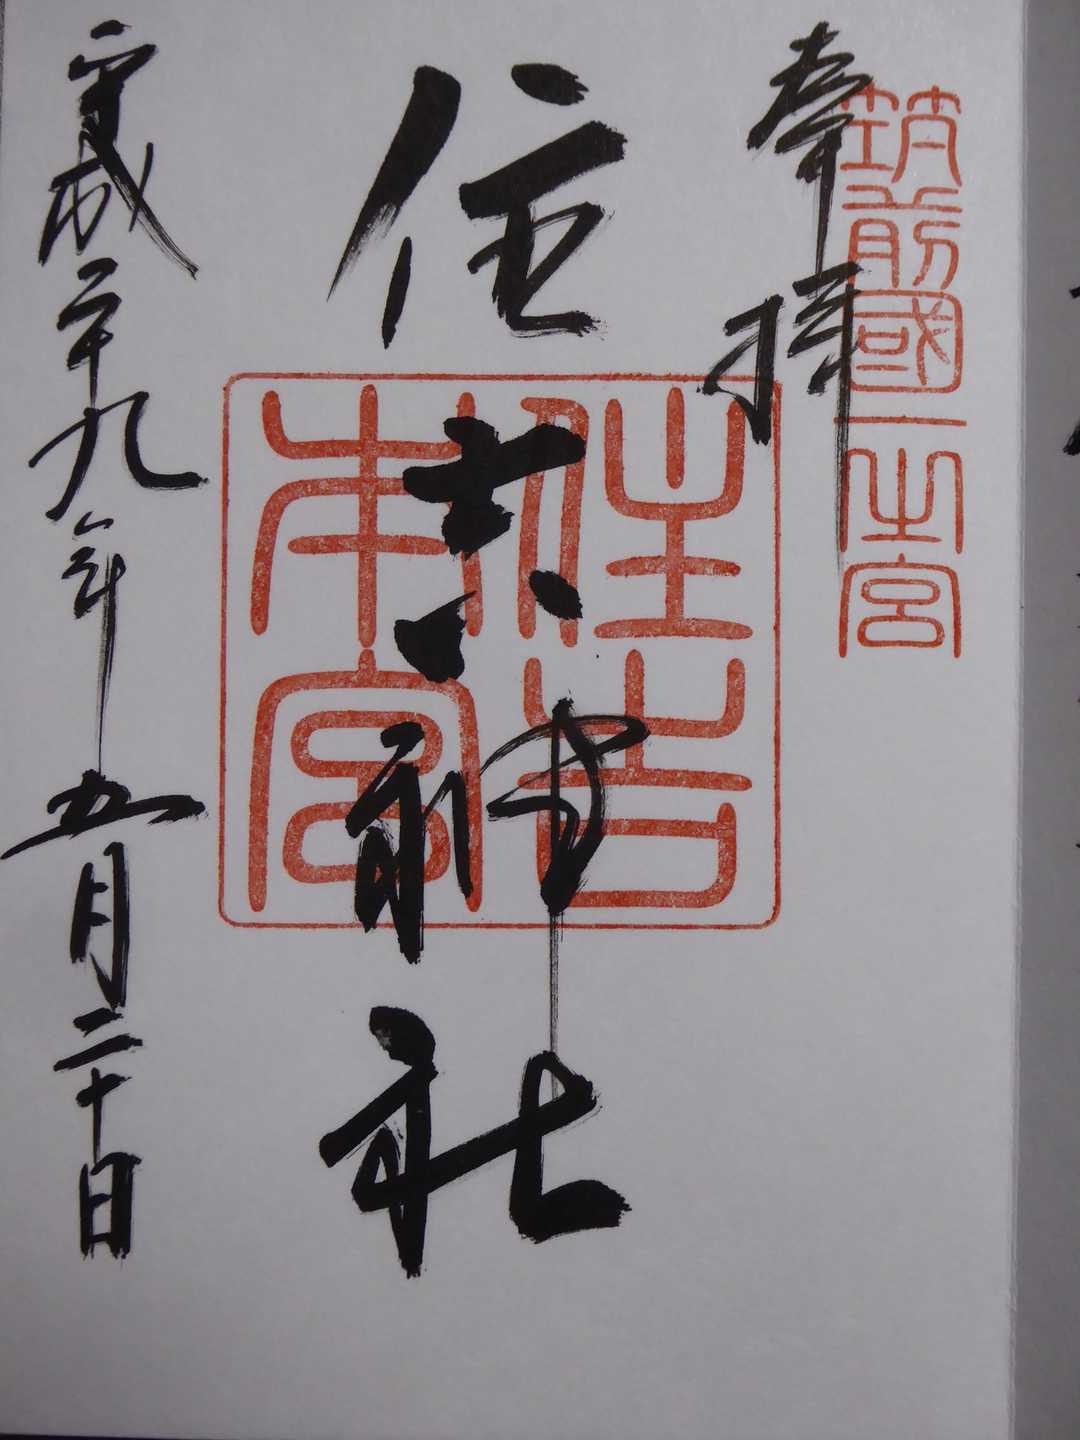 奉拝
筑前國一之宮
住吉神社
住吉本宮
平成二十九年五月二十日